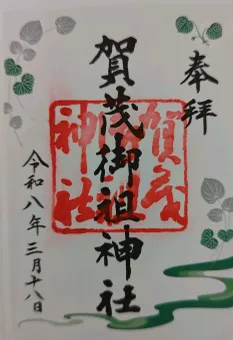 奉拝
賀茂御祖神社
賀茂
神社
令和八年三月十八日